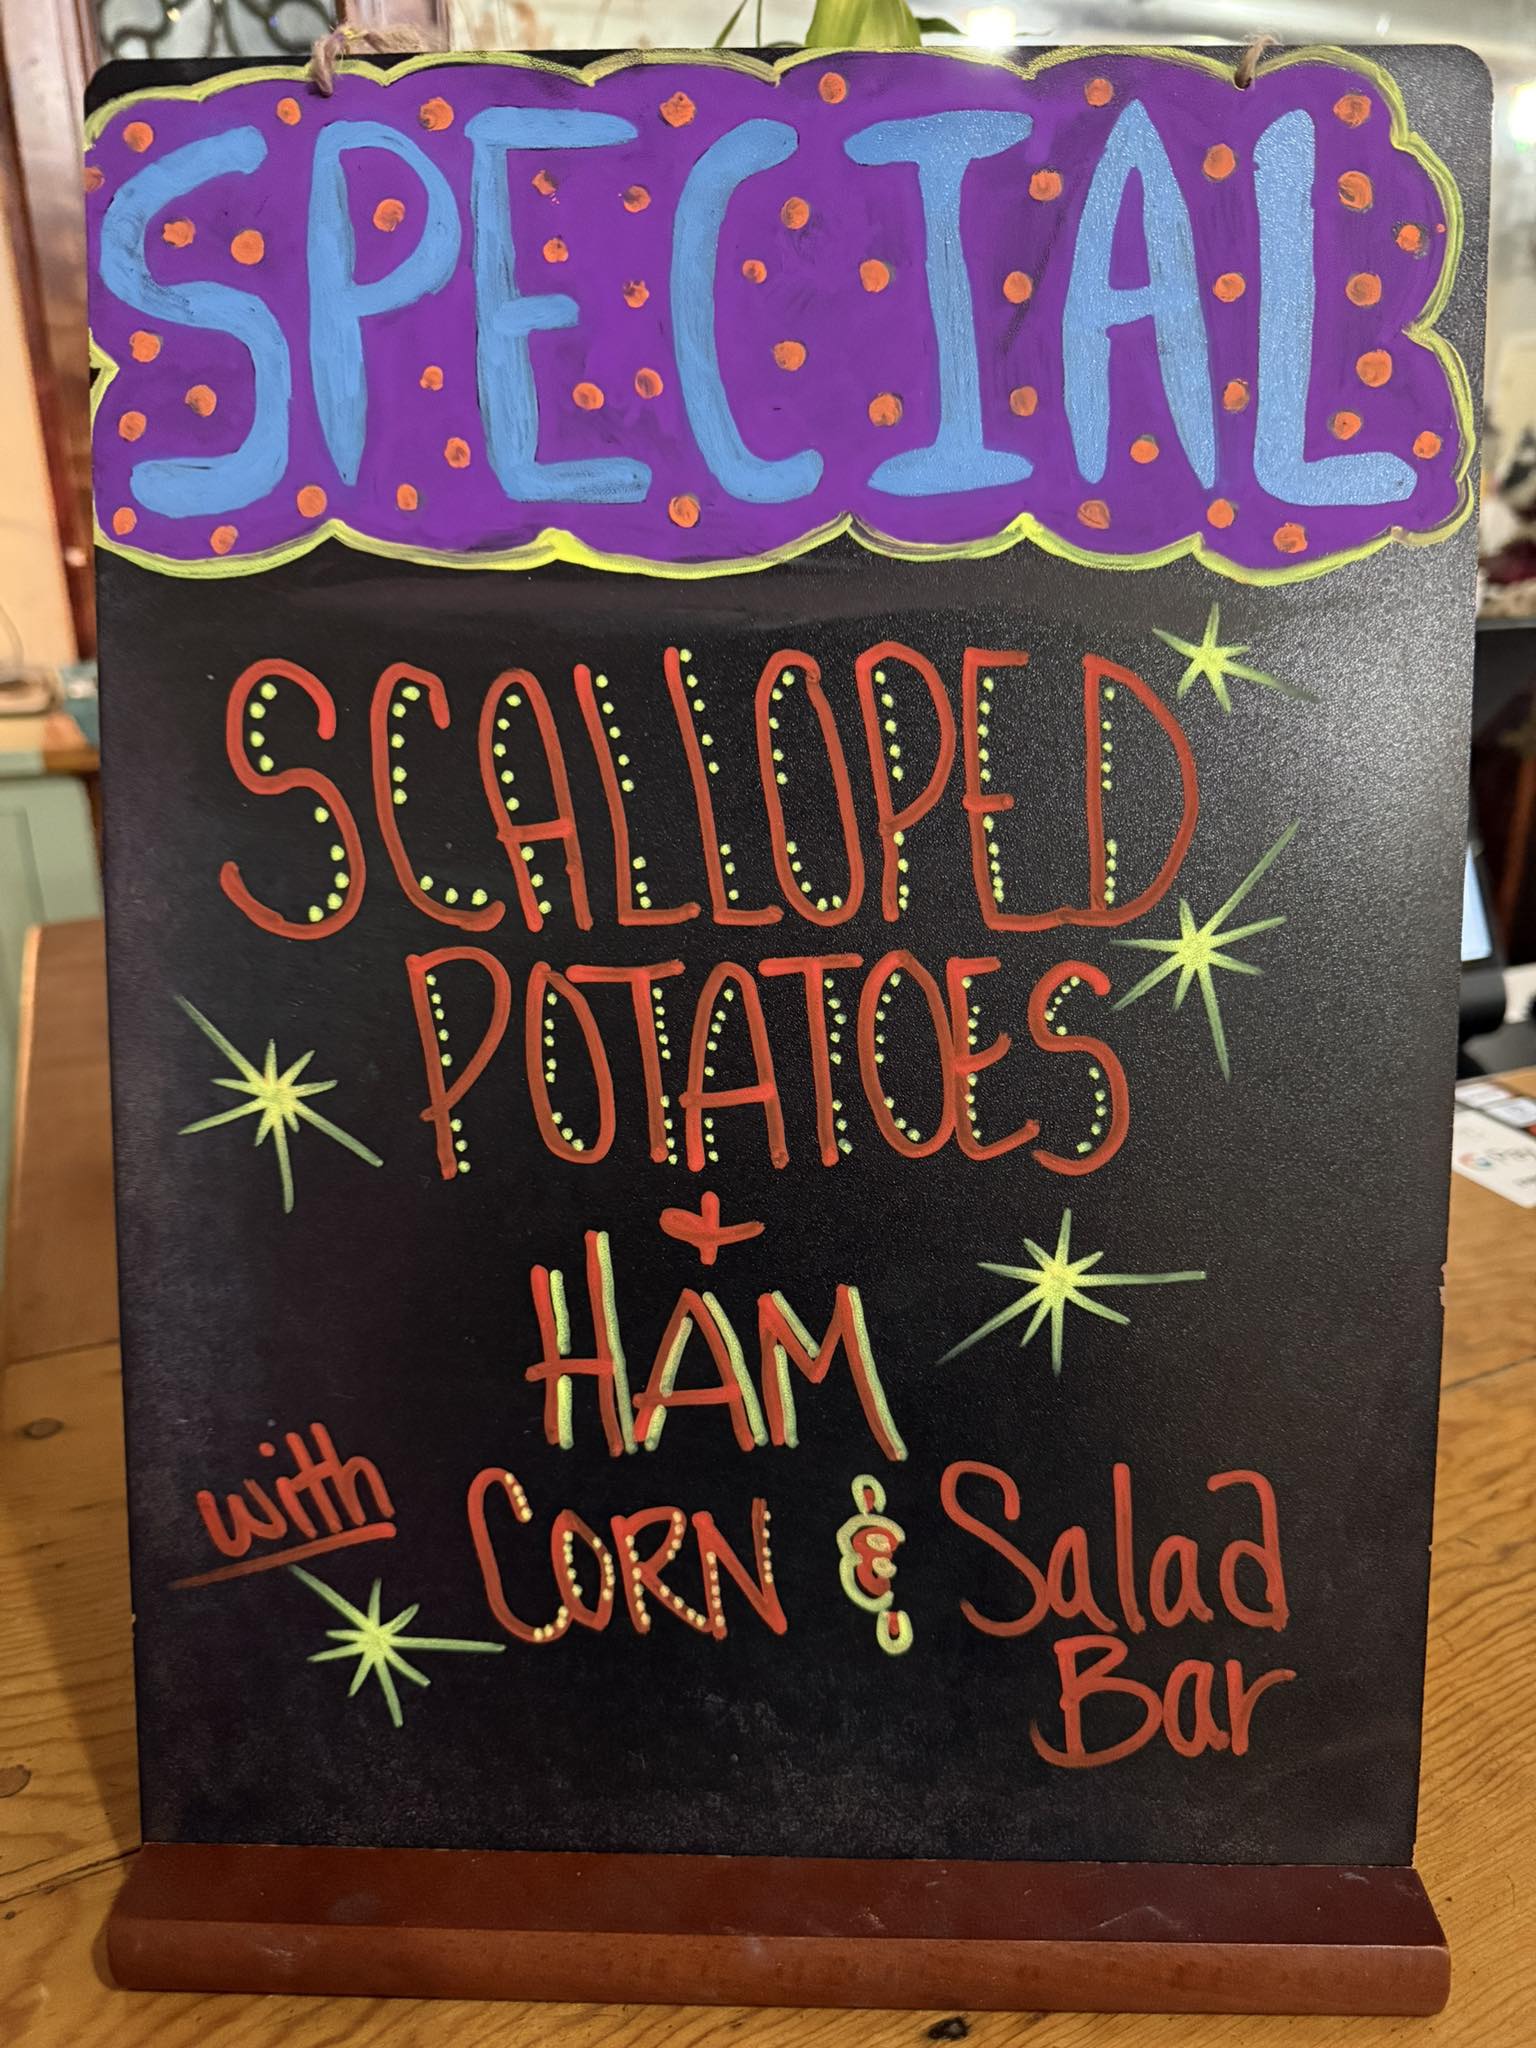 SPECIAL
SCALLOPED
POTATOES
+
HAM
with CORN & Salad
Bar